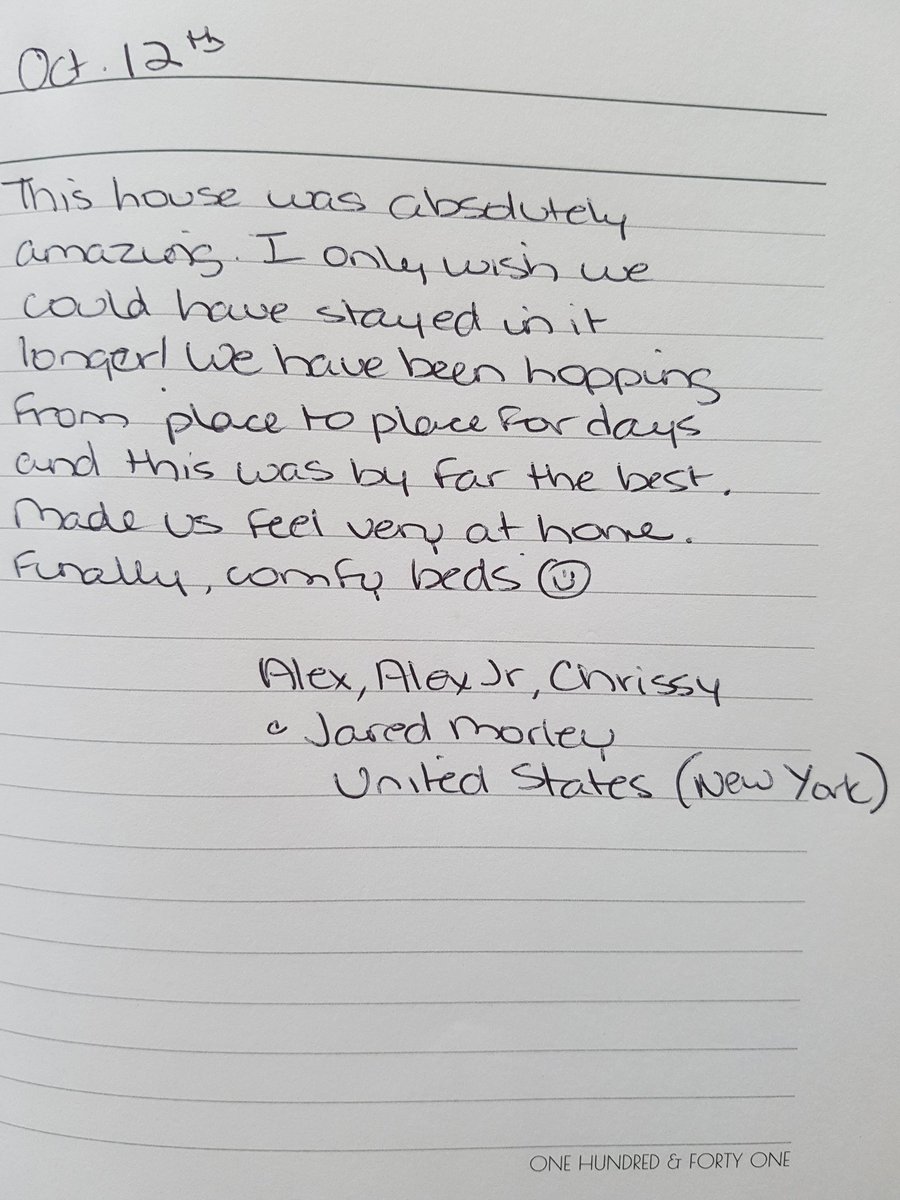 Oct. 12th
This house was absolutely
amazing. I only wish we
could have stayed in it
longer! We have been hopping
from place to place for days
and this was by far the best.
Made us feel very at home.
Finally, comfy beds ☺
Alex, Alex Jr, Chrissy
Jared Morley
United States (New York)
ONE HUNDRED & FORTY ONE